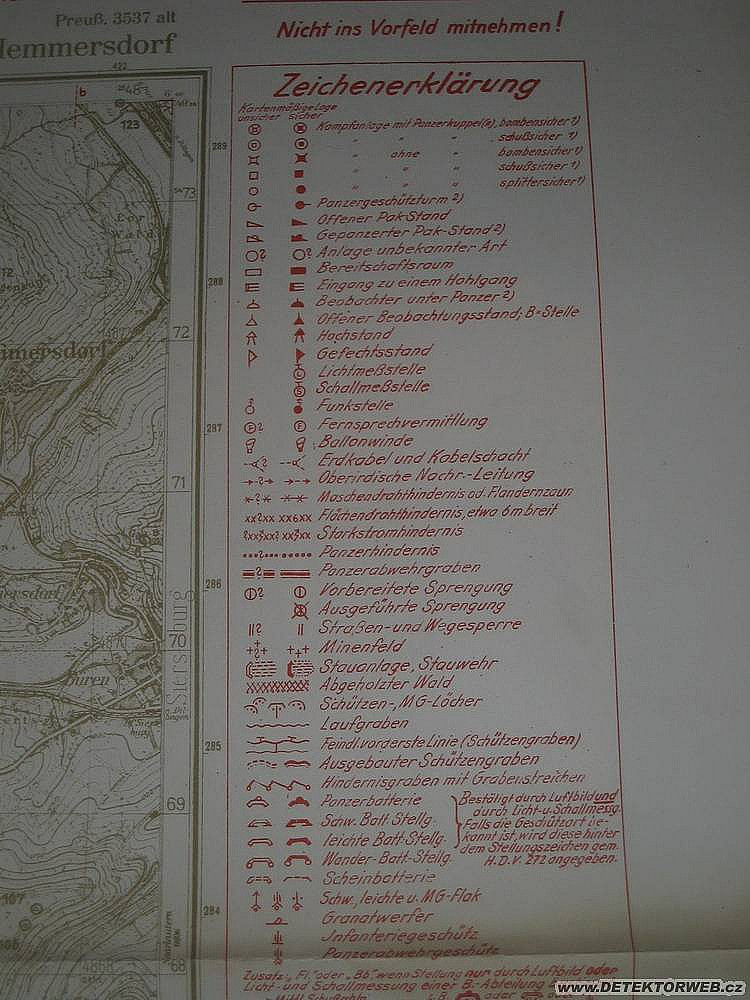 Preuß. 3537 alt
Hemmersdorf
Nicht ins Vorfeld mitnehmen!
Zeichenerklärung
Kartenmäßige Lage
unsicher sicher
Kampfanlage mit Panzerkuppel(n), bombensicher 1)
" " " schußsicher 1)
" ohne " bombensicher 1)
" " " schußsicher 1)
" " " splittersicher 1)
Panzergeschützturm 2)
Offener Pak-Stand
Gepanzerter Pak-Stand 2)
Anlage unbekannter Art
Bereitschaftsraum
Eingang zu einem Hohlgang
Beobachter unter Panzer 2)
Offener Beobachtungsstand; B=Stelle
Hochstand
Gefechtsstand
Lichtmeßstelle
Schallmeßstelle
Funkstelle
Fernsprechvermittlung
Ballonwinde
Erdkabel und Kabelschacht
Oberirdische Nachr.-Leitung
Maschendrahthindernis od. Flandernzaun
Flächendrahthindernis, etwa 6m breit
Starkstromhindernis
Panzerhindernis
Panzerabwehrgraben
Vorbereitete Sprengung
Ausgeführte Sprengung
Straßen- und Wegesperre
Minenfeld
Stauanlage, Stauwehr
Abgeholzter Wald
Schützen-, MG-Löcher
Laufgraben
Feindl. vorderste Linie (Schützengraben)
Ausgebauter Schützengraben
Hindernisgraben mit Grabenstreichen
Panzerbatterie
Schw. Batt Stellg.
leichte Batt-Stellg.
Wander-Batt-Stellg.
Bestätigt durch Luftbild und
durch Licht-u. Schallmessg.
Falls die Geschützart be-
kannt ist, wird diese hinter
dem Stellungszeichen gem.
H.D.V. 272 angegeben.
Scheinbatterie
Schw., leichte u. MG-Flak
Granatwerfer
Infanteriegeschütz
Panzerabwehrgeschütz
Zusatz „Fl." oder „Bb", wenn Stellung nur durch Luftbild oder
Licht- und Schallmessung einer B.-Abteilung
123
289
73
288
72
287
71
286
70
285
69
284
68
Siersburg
Buren
107
www.DETEKTORWEB.cz